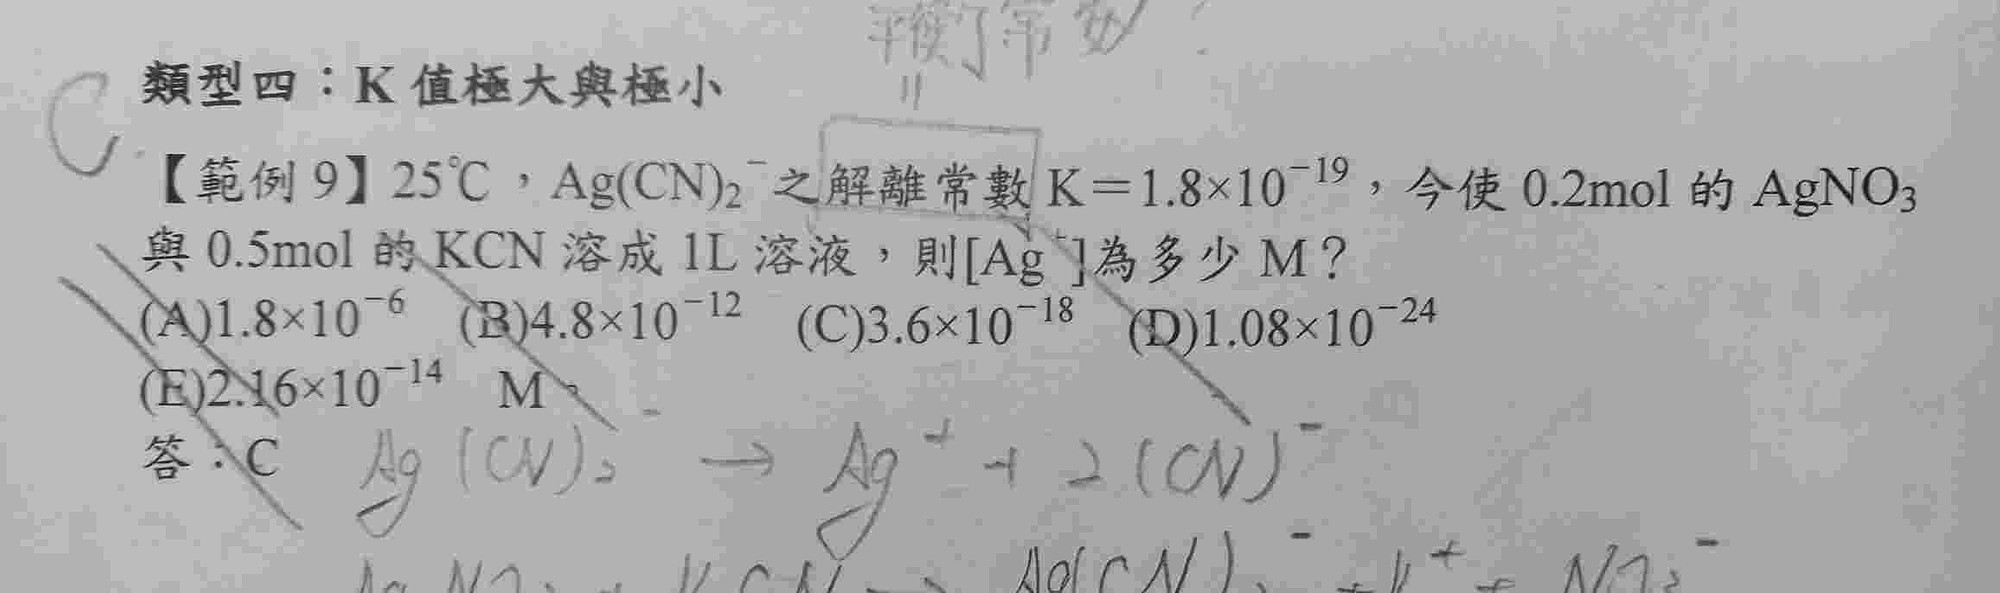 平衡常数?
=
C
類型四：K 值極大與極小
【範例 9】25℃，Ag(CN)₂⁻之解離常數 K＝1.8×10⁻¹⁹，今使 0.2mol 的 AgNO₃
與 0.5mol 的 KCN 溶成 1L 溶液，則[Ag⁺]為多少 M？
(A)1.8×10⁻⁶ (B)4.8×10⁻¹² (C)3.6×10⁻¹⁸ (D)1.08×10⁻²⁴
(E)2.16×10⁻¹⁴ M。
答：C
Ag(CN)₂⁻ → Ag⁺ + 2(CN)⁻
AgNO₃ + KCN → Ag(CN)₂⁻ + K⁺ + NO₃⁻